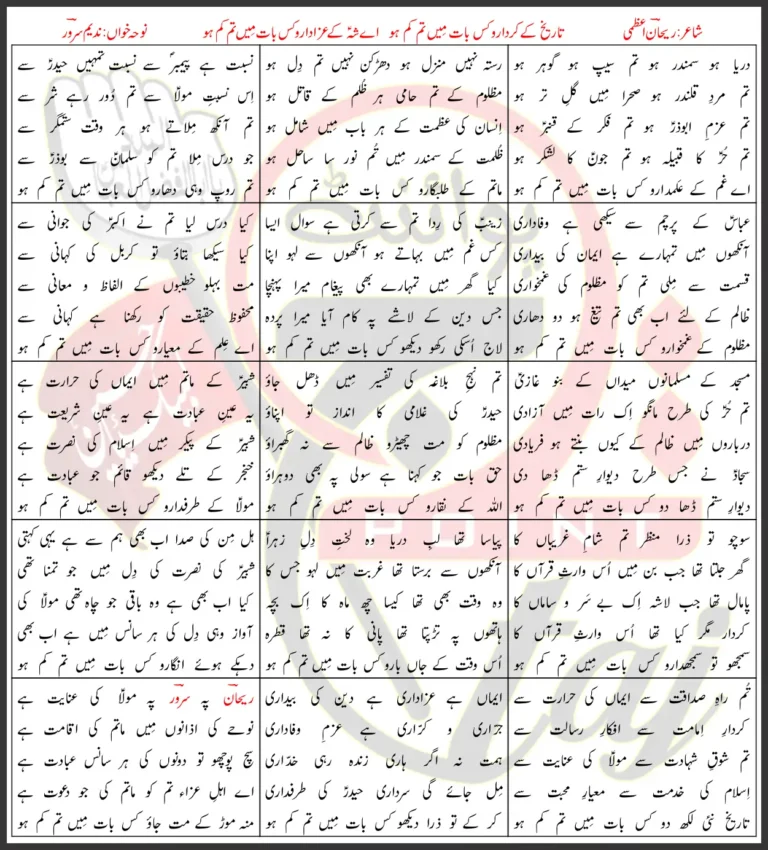 شاعر: ریحان اعظمی تاریخ کے کردارو کس بات میں تم کم ہو اے شہؑ کے عزادارو کس بات میں تم کم ہو نوحہ خواں: ندیم سرور
دریا ہو سمندر ہو تم سیپ ہو گوہر ہو
تم مردِ قلندر ہو صحرا میں گلِ تر ہو
تم عزمِ ابوذرؑ ہو تم فکر کے قنبرؑ ہو
تم حُرؑ کا قبیلہ ہو تم جونؑ کا لشکر ہو
اے غم کے علمدارو کس بات میں تم کم ہو
رستہ نہیں منزل ہو دھڑکن نہیں تم دِل ہو
مظلوم کے تم حامی ہر ظلم کے قاتل ہو
اِنسان کی عظمت کے ہر باب میں شامل ہو
ظُلمت کے سمندر میں تُم نور سا ساحل ہو
ماتم کے طلبگارو کس بات میں تم کم ہو
نسبت ہے پیمبرؐ سے نسبت تمہیں حیدرؑ سے
اِس نسبتِ مولاؑ سے تم دُور رہے شر سے
تم آنکھ مِلاتے ہو ہر وقت ستمگر سے
جو درس مِلا تم کو سلمانؑ سے بوذرؑ سے
تم روپ وہی دھارو کس بات میں تم کم ہو
عباسؑ کے پرچم سے سیکھی ہے وفاداری
آنکھوں میں تمہارے ہے ایمان کی بیداری
قسمت سے مِلی تم کو مظلوم کی غمخواری
ظالم کے لئے اب بھی تم تیغ ہو دو دھاری
مظلوم کے غمخوارو کس بات میں تم کم ہو
زینبؑ کی رِدا تم سے کرتی ہے سوال ایسا
کس غم میں بہاتے ہو آنکھوں سے لہو اپنا
کیا گھر میں تمہارے بھی پیغام میرا پہنچا
جس دین کے لاشے پہ کام آیا میرا پردہ
لاج اُسکی رکھو دیکھو کس بات میں تم کم ہو
کیا درس لیا تم نے اکبرؑ کی جوانی سے
کیا سیکھا بتاؤ تو کربل کی کہانی سے
مت بہلو خطیبوں کے الفاظ و معانی سے
محفوظ حقیقت کو رکھنا ہے کہانی سے
اے عِلم کے معیارو کس بات میں تم کم ہو
مسجد کے مسلمانوں میداں کے بنو غازی
تم حُرؑ کی طرح مانگو اِک رات میں آزادی
درباروں میں ظالم کے کیوں بنتے ہو فریادی
سجادؑ نے جس طرح دیوارِ ستم ڈھا دی
دیوارِ ستم ڈھا دو کس بات میں تم کم ہو
تم نہجِ بلاغہ کی تفسیر میں ڈھل جاؤ
حیدرؑ کی غلامی کا انداز تو اپناؤ
مظلوم کو مت چھیڑو ظالم سے نہ گھبراؤ
حق بات جو کہنا ہے سولی پہ بھی دوہراؤ
اللہ کے نقارو کس بات میں تم کم ہو
شبیرؑ کے ماتم میں ایماں کی حرارت ہے
یہ عینِ عبادت ہے یہ عینِ شریعت ہے
شبیرؑ کے پیکر میں اِسلام کی نصرت ہے
خنجر کے تلے دیکھو قائم جو عبادت ہے
مولاؑ کے طرفدارو کس بات میں تم کم ہو
سوچو تو ذرا منظر تم شامِ غریباں کا
گھر جلتا تھا جب بن میں اُس وارثِ قرآں کا
پامال تھا جب لاشہ اِک بے سَر و ساماں کا
کردار مگر کیا تھا اُس وارثِ قرآں کا
سمجھو تو سمجھدارو کس بات میں تم کم ہو
پیاسا تھا لبِ دریا وہ لختِ دِلِ زہراؑ
آنکھوں سے برستا تھا غربت میں لہو جس کا
وہ وقت بھی تھا کیسا چھ ماہ کا اِک بچہ
ہاتھوں پہ تڑپتا تھا پانی کا نہ تھا قطرہ
اُس وقت کے جاں بارو کس بات میں تم کم ہو
ہل مِن کی صدا اب بھی ہم سے ہے یہی کہتی
شبیرؑ کی نصرت کی دِل میں جو تمنا تھی
کیا اب بھی ہے وہ باقی جو چاہ تھی مولاؑ کی
آواز وہی دِل کی ہر سانس میں ہے اب بھی
دہکے ہوئے انگارو کس بات میں تم کم ہو
تُم راہِ صداقت سے ایماں کی حرارت سے
کردارِ اِمامت سے افکارِ رسالت سے
تم شوقِ شہادت سے مولاؑ کی عنایت سے
اِسلام کی خدمت سے معیارِ محبت سے
تاریخ نئی لکھ دو کس بات میں تم کم ہو
ایماں ہے عزاداری ہے دین کی بیداری
جرّاری و کرّاری ہے عزمِ وفاداری
ہمت نہ اگر ہاری زندہ رہی خدّاری
مِل جائے گی سرداری حیدرؑ کی طرفداری
کر کے تو ذرا دیکھو کس بات میں تم کم ہو
ریحان پہ سرور پہ مولاؑ کی عنایت ہے
نوحے کی اذانوں میں ماتم کی اقامت ہے
سچ پوچھو تو دونوں کی ہر سانس عبادت ہے
اے اہلِ عزاء تم کو ماتم کی جو دعوت ہے
منہ موڑ کے مت جاؤ کس بات میں تم کم ہو
پوائنٹ
POINT
taj